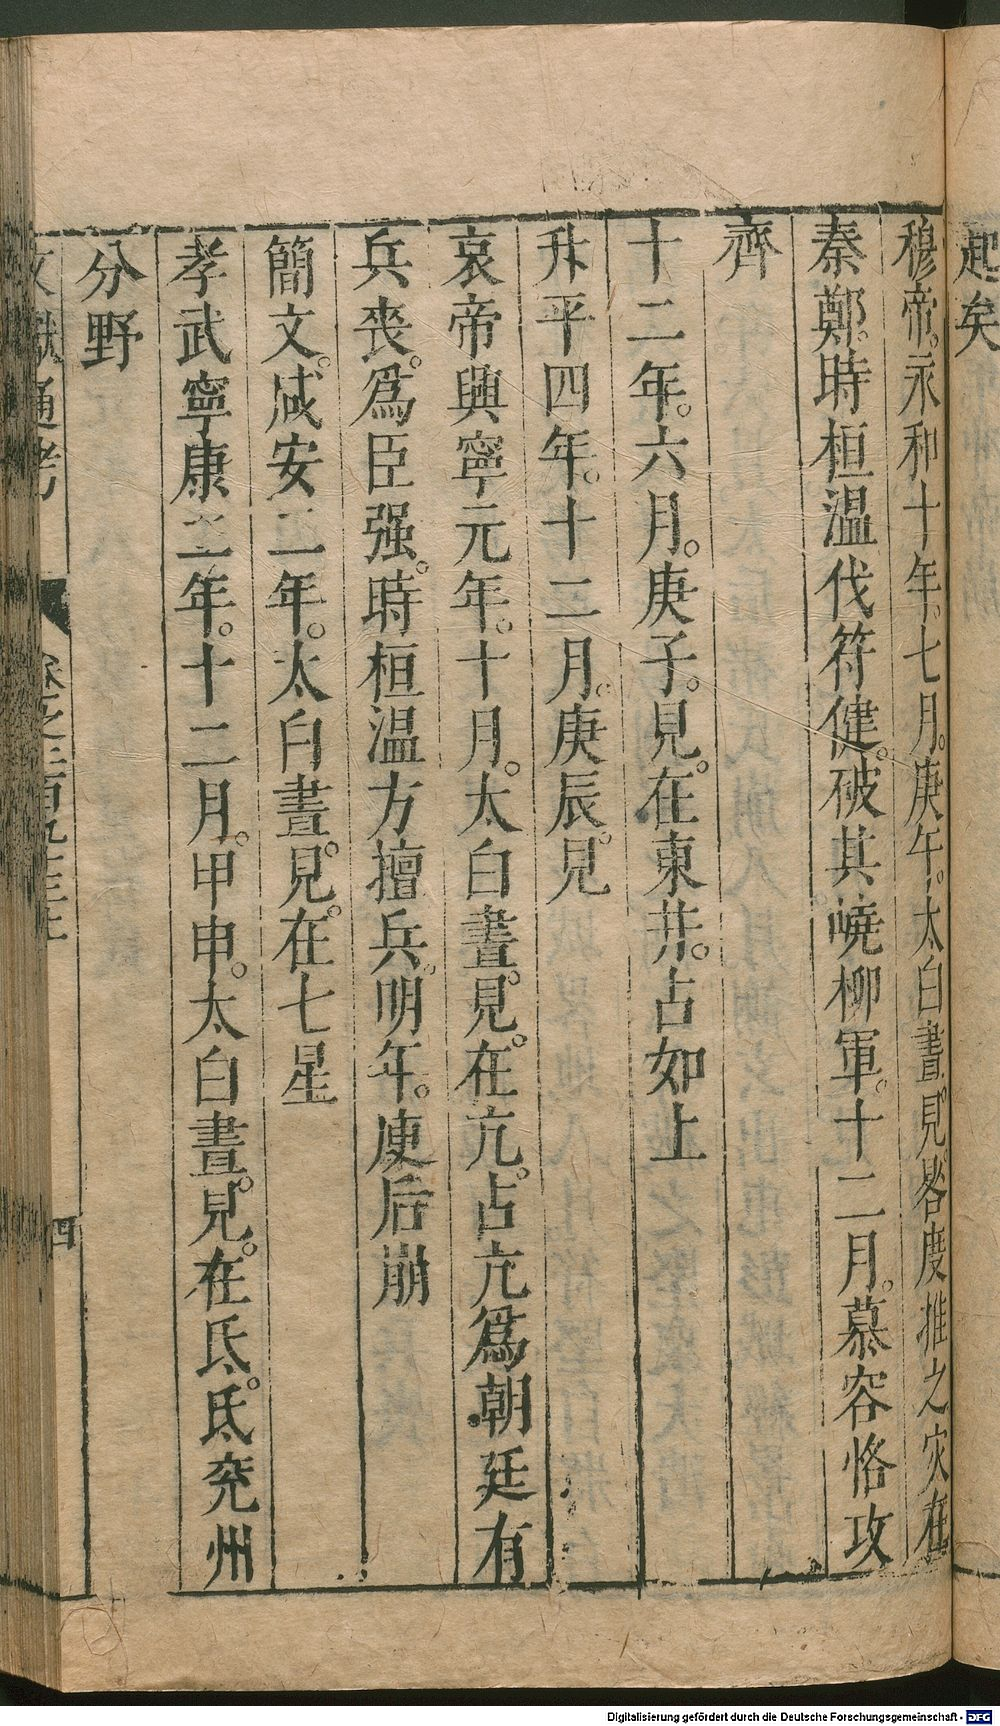 起矣
穆帝。永和十年。七月。庚午。太白晝見。晷度推之災在
秦鄭。時桓温伐符健。破其嶢柳軍。十二月。慕容恪攻
齊
十二年。六月。庚子。見。在東井。占如上
升平四年。十二月。庚辰。見
哀帝興寧元年。十月。太白晝見。在亢。占亢爲朝廷有
兵喪。爲臣强。時桓温方擅兵。明年。庾后崩
簡文。咸安二年。太白晝見。在七星
孝武寧康二年。十二月。甲申。太白晝見。在氐。氐兖州
分野
文獻通考
卷之二百九十三
四
Digitalisierung gefördert durch die Deutsche Forschungsgemeinschaft - DFG